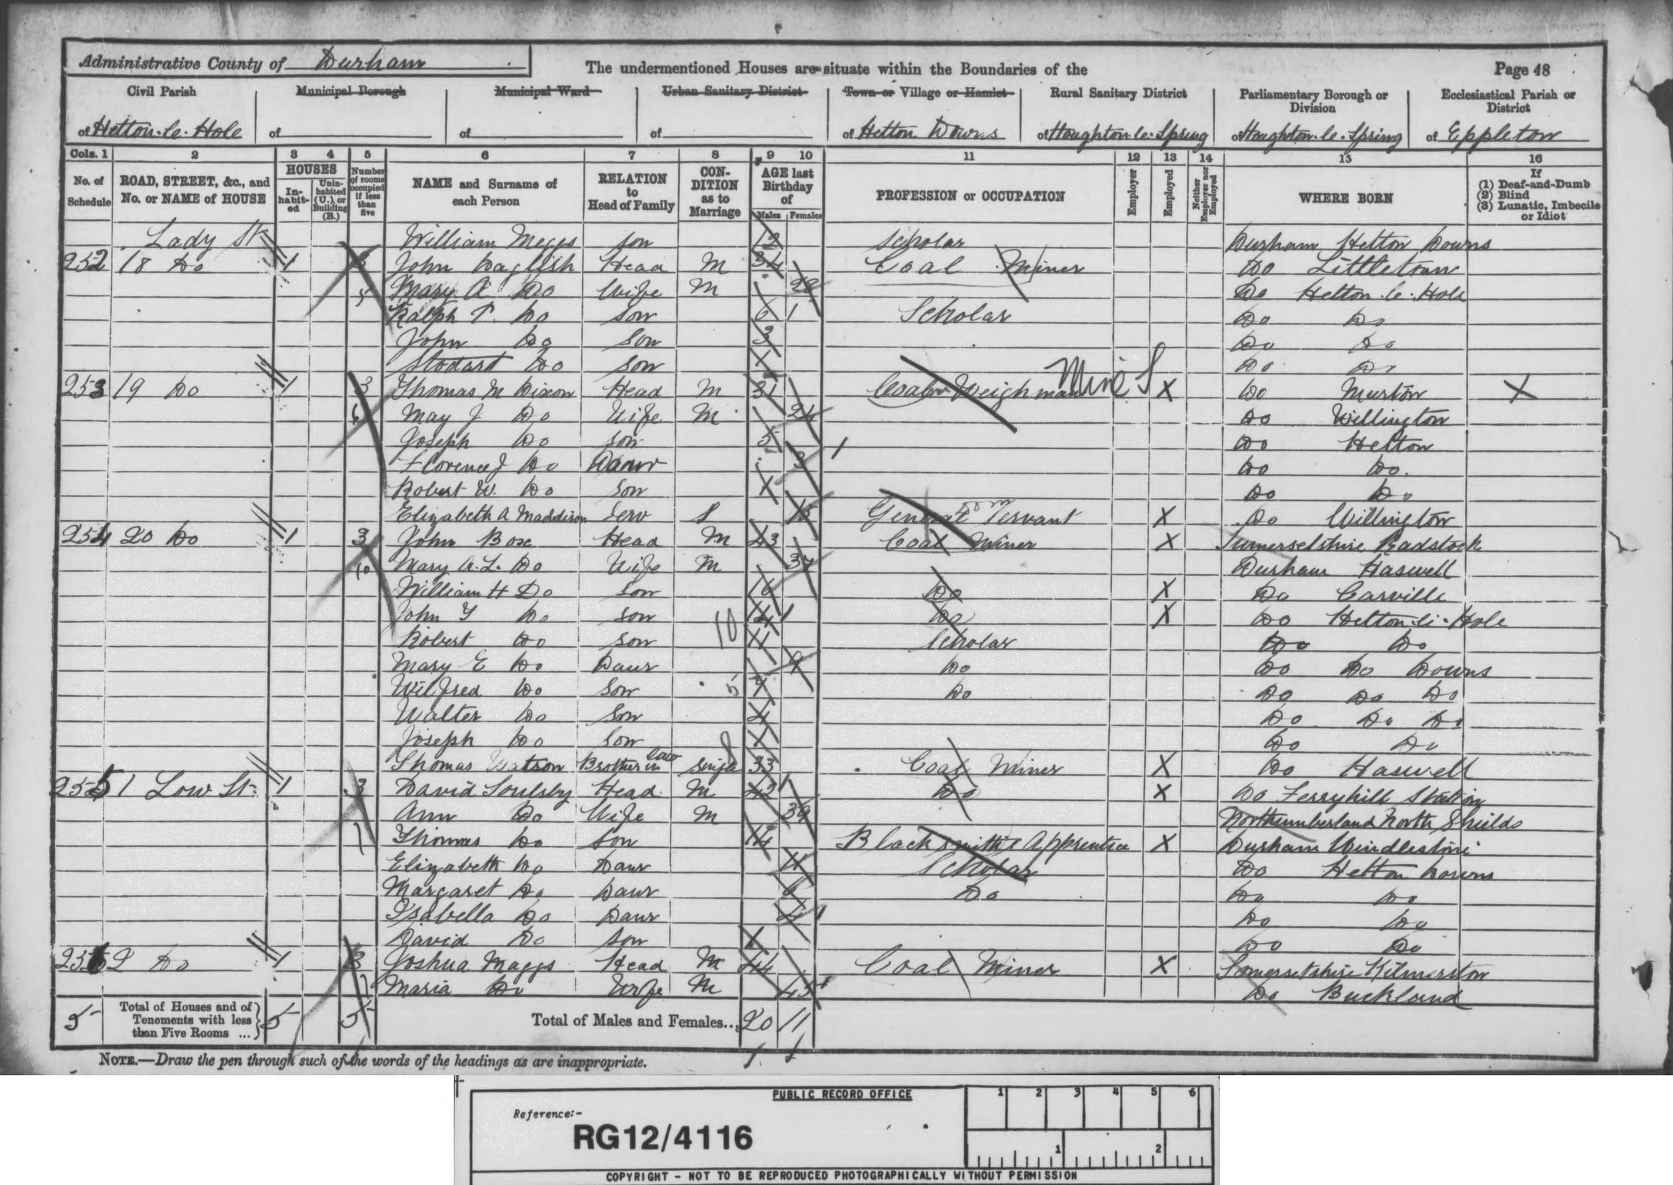 Administrative County of Durham
The undermentioned Houses are situate within the Boundaries of the
Page 48
Civil Parish
Municipal Borough
Municipal Ward
Urban Sanitary District
Town or Village or Hamlet
Rural Sanitary District
Parliamentary Borough or Division
Ecclesiastical Parish or District
of Hetton-le-Hole
of
of
of
of Hetton Downs
of Houghton-le-Spring
of Houghton-le-Spring
of Eppleton
Cols. 1 2 3 4 5 6 7 8 9 10 11 12 13 14 15 16
No. of Schedule
ROAD, STREET, &c., and No. or NAME of HOUSE
HOUSES
Inhabited
Uninhabited (U.) or Building (B.)
Number of rooms occupied if less than five
NAME and Surname of each Person
RELATION to Head of Family
CONDITION as to Marriage
AGE last Birthday of
Males Females
PROFESSION or OCCUPATION
Employer
Employed
Neither Employer nor Employed
WHERE BORN
If
(1) Deaf-and-Dumb
(2) Blind
(3) Lunatic, Imbecile or Idiot
Lady St William Meggs Son Scholar Durham Hetton Downs
252 18 Do 1 John Daglish Head M 34 Coal Miner Do Littletown
Mary A Do Wife M Do Hetton-le-Hole
Ralph T. Do Son 6 Scholar Do Do
John Do Son 3 Do Do
Stodart Do Son Do Do
253 19 Do 1 3 Thomas M Dixon Head M 31 Coal Weighman Mine S X Do Murton X
May J Do Wife M 24 Do Wellington
Joseph Do Son 5 Do Hetton
Florence J Do Daur 3 Do Do
Robert W. Do Son Do Do
Elizabeth A Maddison Serv S General Servant X Do Willington
254 20 Do 1 3 John Box Head M 43 Coal Miner X Somersetshire Radstock
Mary A.L. Do Wife M 37 Durham Haswell
William H Do Son 16 Do X Do Carville
John Y Do Son 14 Do X Do Hetton-le-Hole
Robert Do Son 11 Scholar Do Do
Mary E Do Daur 9 Do Do Do Downs
Wilfred Do Son 7 Do Do Do Do
Walter Do Son 4 Do Do Do
Joseph Do Son Do Do
Thomas Watson Brother in law Single 33 Coal Miner X Do Haswell
255 1 Low St 1 3 David Soulsby Head M 42 Do X Do Ferryhill Station
Ann Do Wife M 39 Northumberland North Shields
Thomas Do Son 14 Blacksmiths Apprentice X Durham Windlestone
Elizabeth Do Daur 11 Scholar Do Hetton Downs
Margaret Do Daur 6 Do Do Do
Isabella Do Daur 4 Do Do
David Do Son 1 Do Do
256 2 Do 1 3 Joshua Maggs Head M 44 Coal Miner X Somersetshire Kilmerston
Maria Do Wife M 45 Do Buckland
5 Total of Houses and of Tenements with less than Five Rooms ... 5 5 Total of Males and Females... 20 11
NOTE.—Draw the pen through such of the words of the headings as are inappropriate.
PUBLIC RECORD OFFICE
1 2 3 4 5 6
Reference:-
RG12/4116
1 2
COPYRIGHT - NOT TO BE REPRODUCED PHOTOGRAPHICALLY WITHOUT PERMISSION